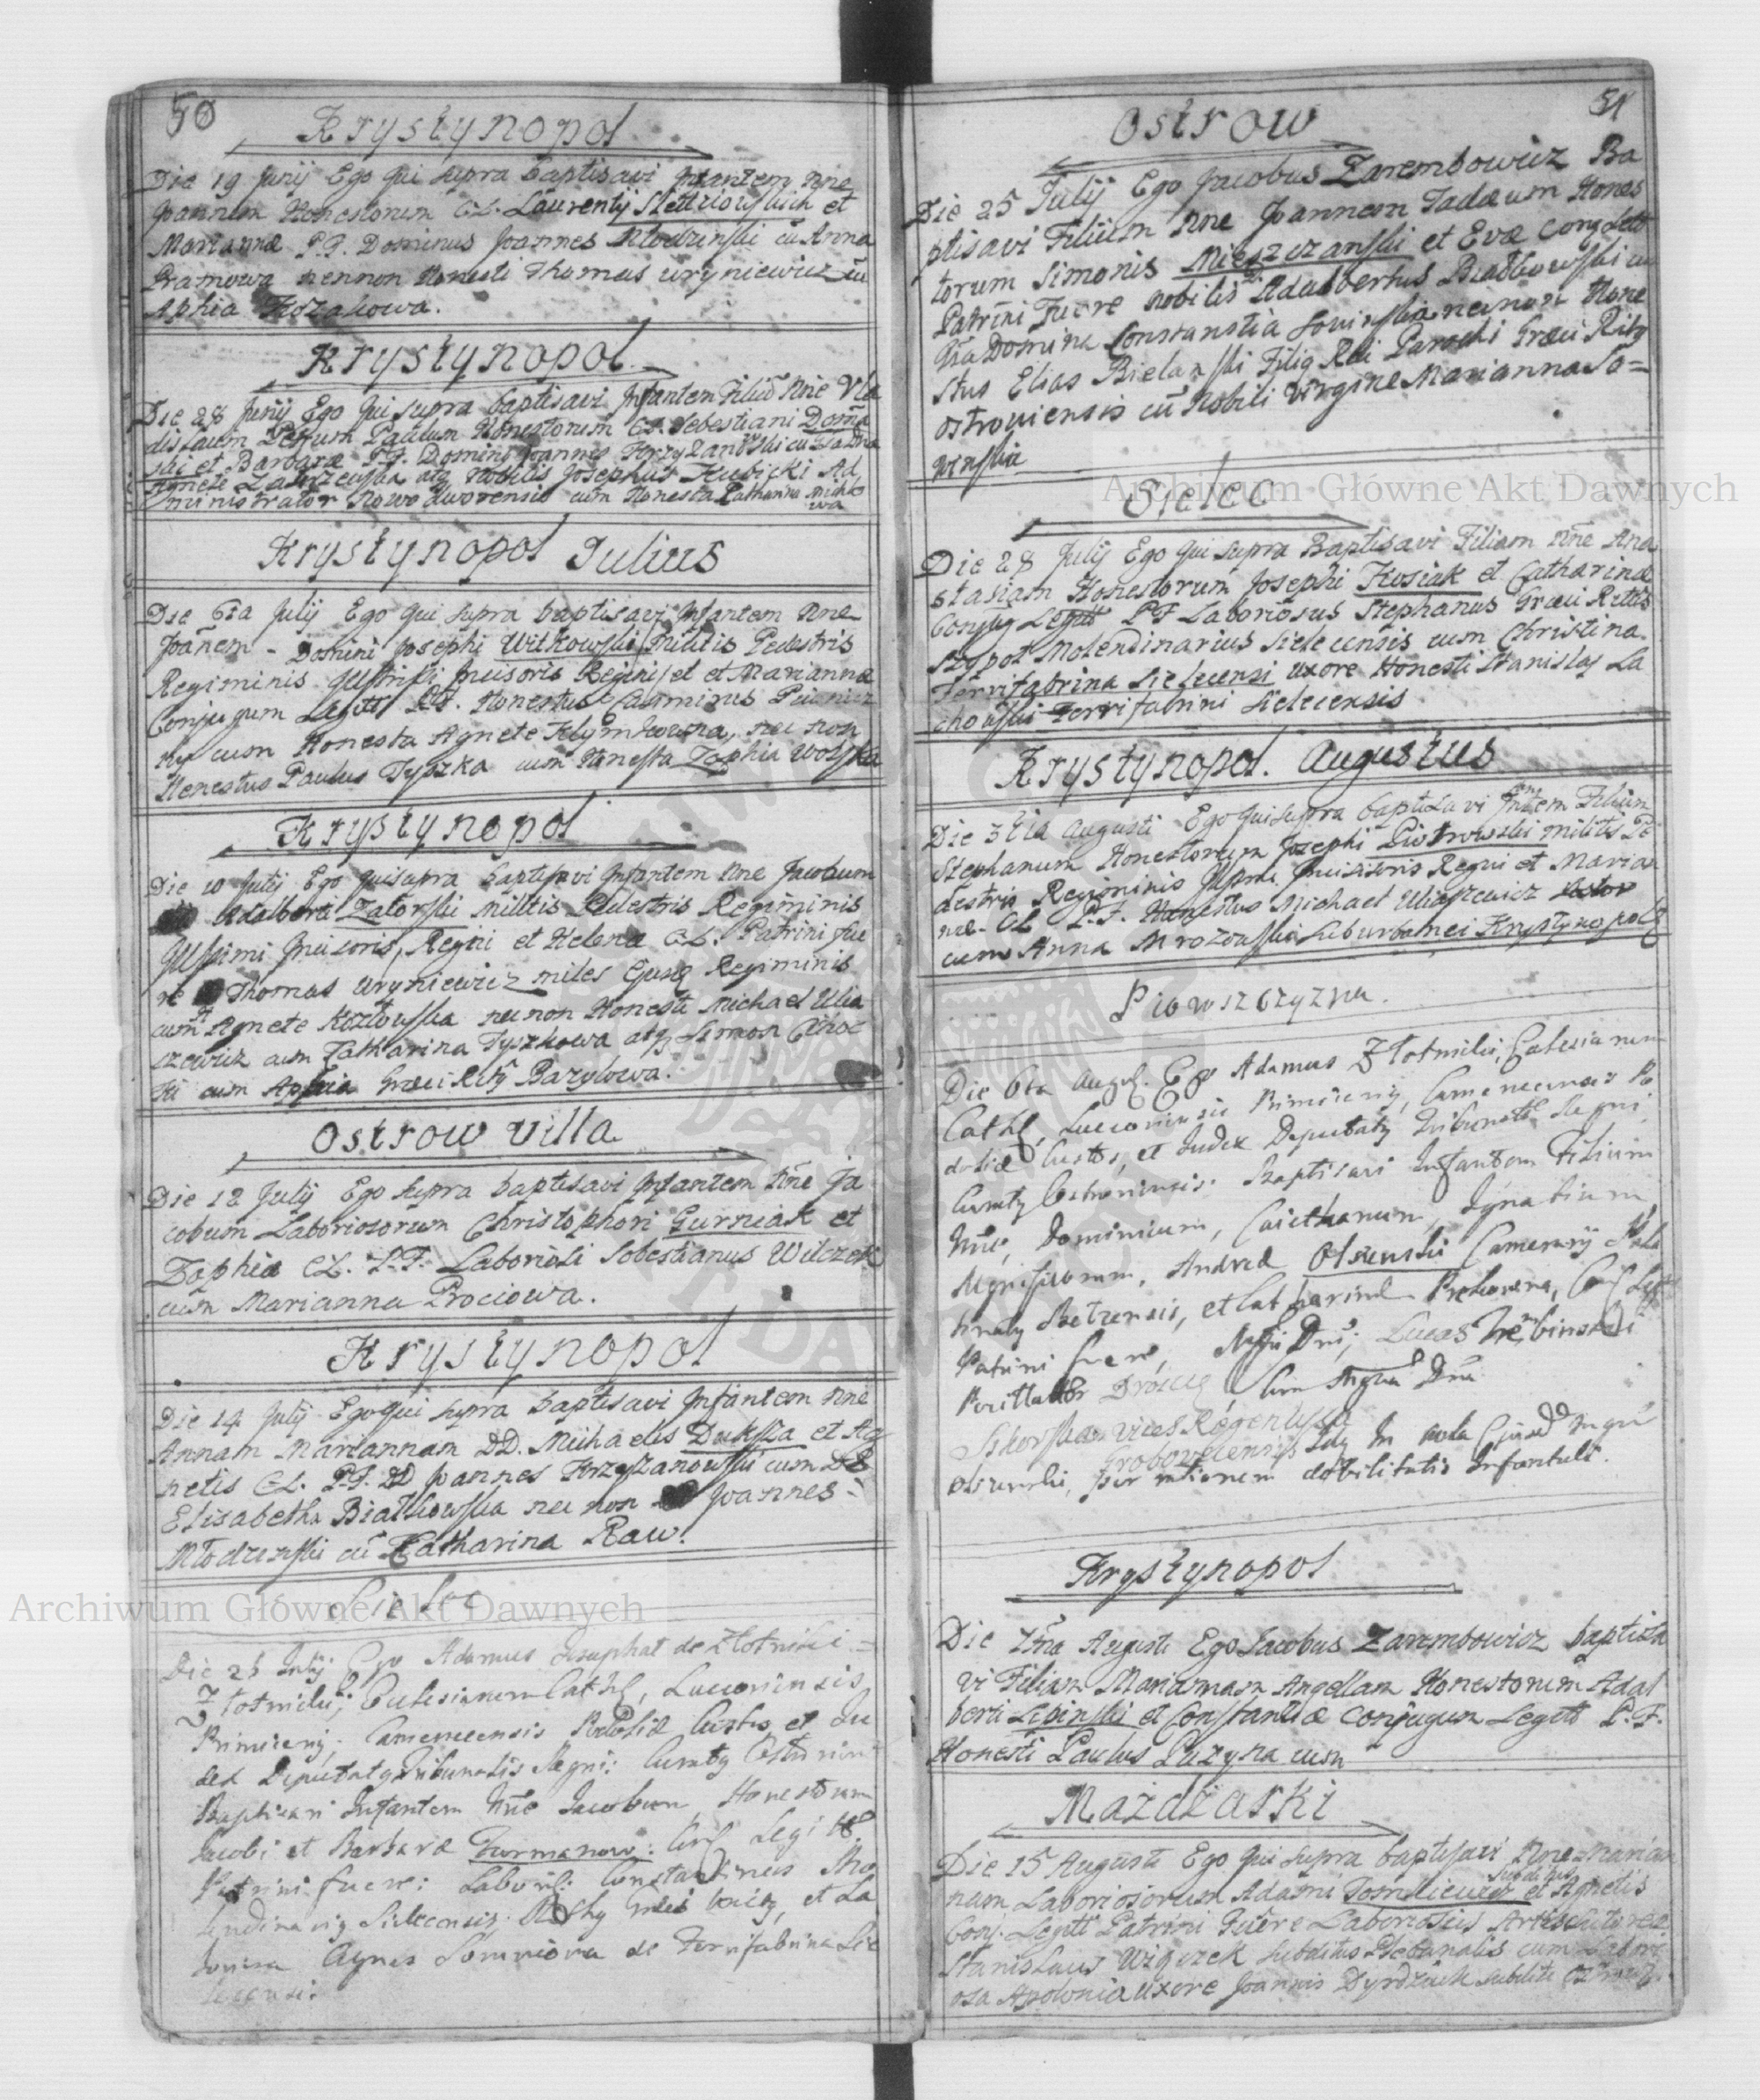 50
Krystynopol
Die 19 Junij Ego qui supra baptisavi Infantem Nne
Joannem Honestorum CL. Laurentij et
Mariannæ P.P. Dominus Joannes Młodzinski cū Anna
Pramowa nennon Honesti Thomas Uryniewicz cū
Aphia Kozakowa.
Krystynopol
Die 28 Junij Ego Qui supra baptisavi Infantem Filiū Nne Vla
dislaum Petrum Paulum Honestorum CL. Sebestiani
ski et Barbaræ P.P. Domini Joannes Krzyżanowski cu
Agnete atq Nobilis Josephus Kubicki Ad
ministrator Nowodworensis cum Honesta Catharina Michło
wa
Krystynopol Julius
Die 6ta Julij Ego Qui supra baptisavi Infantem Nne
Joañem - Domini Josephi Witkowski Militis Pedestris
Regiminis Illustrissi Incisoris Regini et Mariannæ
Conjugum Legitt PP. Honestus Casimirus
ky cum Honesta Agnete Klymkowna, nec non
Honestus Paulus Tyszka cum Honesta Zophia Wolska
Krystynopol
Die 10 Julij Ego Quisupra baptisavi Infantem Nne Jacobum
Adalberti Zatorski Militis Pedestris Regiminis
Illssimi Incisoris, Regni et Helenæ CL. Patrini fue
re Thomas Uryniewicz miles Ejusq Regiminis
cum Agnete Kozłowska necnon Honesti Michael Ulia
szewicz cum Catharina Tyszkowa atq Simon
ki cum Aphia Græci Ritŷ Bazylowa.
Ostrow Villa
Die 12 Julij Ego supra baptisavi Infantem Nñe Ja
cobum Laboriosorum Christophori Gurniak et
Zophiæ CL. P.P. Laboriosi Sobestianus Wilczek
cum Marianna Prociowa.
Krystynopol
Die 14 Julij Ego qui supra baptisavi Infantem Nne
Annam Mariannam DD. Michaelis Duksza et Ag
netis CL. P.P. DD Joannes Krzyżanowski cum
Elisabetha Białkowska nec non Joannes
Młodzinski cū Catharina Raw.
Sielec
Die 25 Julij Ego Adamus Josaphat de Złotniki
Złotnicki, Ecclesiarum Cathl, Luceoriensis
Primiceriŷ, Camenecensis Podoliæ Custos et Ju
dex Deputatq Tribunalis Regni: Curatq Ostrovien
Baptisavi Infantem Nñe Jacobum Honestorum
Jacobi et Barbaræ Furmanow: Conj Legitt
Patrini fuere: Labori: Constantinus Mo
lendinariq Sielecensis et La
boriosa Agnes de Ferrifabrina Sie
lecensi:
51
Ostrow
Die 25 Julij Ego Jacobus Zarembowicz Ba
ptisavi Filium Nne Joannem Tadæum Hones
torum Simonis Mieszczanski et Evæ Conj Legitt
Patrini Fuere Nobilis Adalbertus Białkowski cu
Gsa Domina Constantia Sovinska necnon Hone
stus Elias Bielanski Filiq Rdi Parochi Græci Ritq
Ostroviensis cū Nobili Virgine Marianna So=
winska
Sielec
Die 28 Julij Ego Qui supra Baptisavi Filiam Nñe Ana
stasiam Honestorum Josephi Kusiak et Catharinæ
Conjug Legitt PP Laboriosus Stephanus Græci Rittis
Szypot Molendinarius Sielecensis cum Christina
Ferrifabrina Sielecensi uxore Honesti Stanislaj La
chowski Ferrifabrini Sielecensis
Krystynopol. Augustus
Die 3tia Augusti Ego Quisupra baptisavi Infātem Filium
Stephanum Honestorum Josephi Piotrowski militis Pe
destris Regiminis Illsmi Incisoris Regni et Marian
næ CL P.P. Honestus Michael Uliaszewicz
cum Anna Mrozowska Suburbanei Krystynopolq
Piwoszczyzna.
Die 6ta Augs. Ego Adamus Złotnicki, Ecclesiarum
Cathl, Luceoriensis Primiceriŷ, Camenecensis Po
doliæ Custos, et Judex Deputatq Tribunalis Regni,
Curatq Ostroviensis. Baptisavi Infantem Filium
Nñe, Dominicum, Caiethanum, Ignatium,
Mgnificorum, Andreæ Olszewski Camerarij Pala
tinatq Belzensis, et Catharinæ Conj Legitt
Patrini fuere, Mfci Dni, Lucas Trębinski
Pocillator Drohicq, cum Mgfca Dña
Sikorska Vices Regentissa
Grabovecensis
Olszewski, per rationem debilitatis Infantuli.
Krystynopol
Die 7ma Augusti Ego Jacobus Zarembowicz baptisa
vi Filiam Mariannam Angellam Honestorum Adal
berti Lipinski et Constantiæ Conjugum Legitt P.P.
Honesti Paulus Puzyna cum
Mazdzarki
Die 15 Augusti Ego Qui supra baptisavi Nne Marian
nam Laboriosorum Adami Tomkiewicz subditus et Agnetis
Conj. Legitt Patrini Fuere Laboriosius
Stanislaus Wiączek subditus Plebanalis cum Labori
osa Apolonia uxore Joannis Dyrdziak subditi
Archiwum Główne Akt Dawnych
Archiwum Główne Akt Dawnych